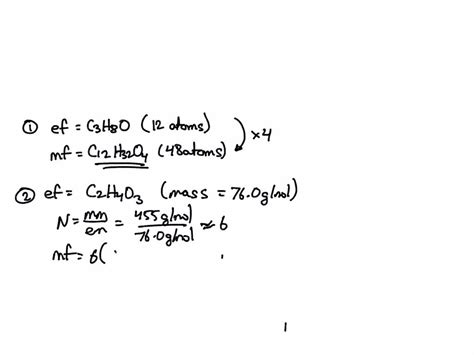 ① ef = C3H8O (12 atoms)
mf = C12H32O4 (48 atoms)
×4
② ef = C2H4O3 (mass = 76.0g/mol)
N = mm/em = 455g/mol / 76.0g/mol ≈ 6
mf = 6(